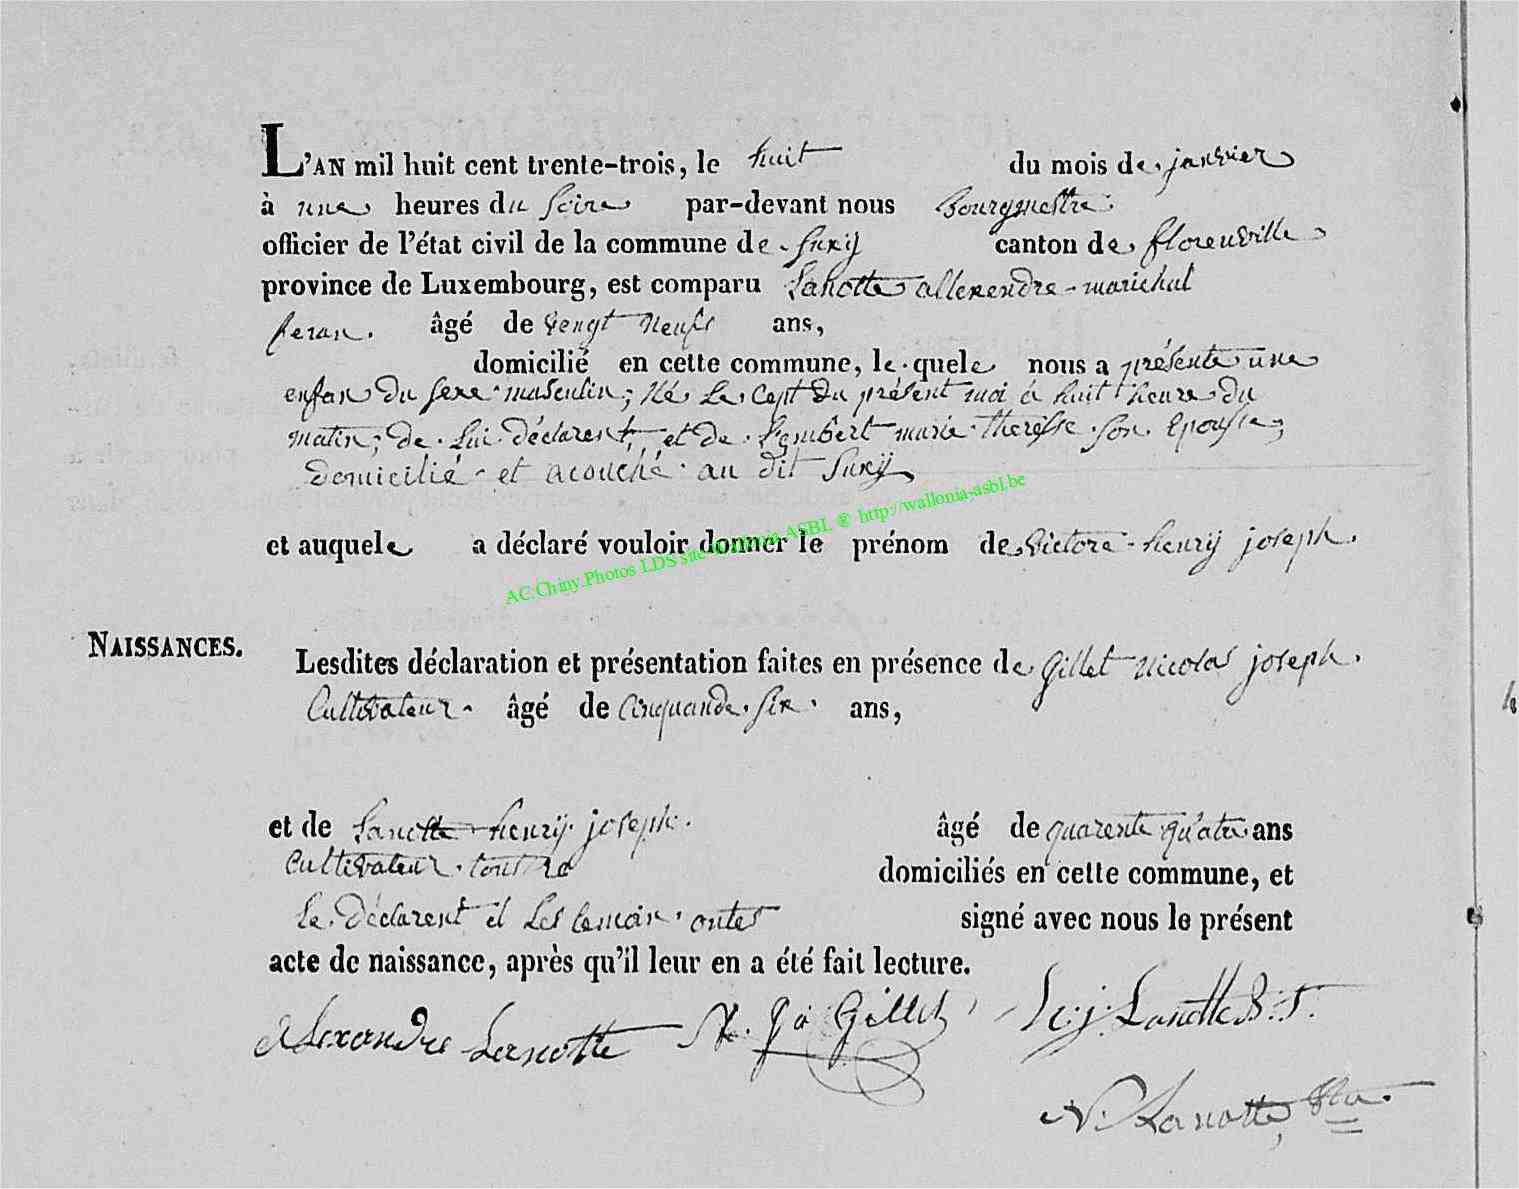 L'AN mil huit cent trente-trois, le huit du mois de janvier
à une heures du soire par-devant nous Bourgmestre
officier de l'état civil de la commune de Suxÿ canton de florenville
province de Luxembourg, est comparu Lanotte allexendre marichal
feran. âgé de vengt neufs ans,
domicilié en cette commune, le quele nous a présente une
enfan du sexe masculin; né le cept du présent moi à huit heure du
matin; de lui déclarent, et de Lembert marie therèsse son epousse;
domicilié et acouché au dit Suxÿ
et auquele a déclaré vouloir donner le prénom de victore henrÿ joseph.
AC.Chiny.Photos LDS site Wallonia ASBL ® http://wallonia-asbl.be
NAISSANCES.
Lesdites déclaration et présentation faites en présence de Gillet nicolas joseph.
Cultivateur âgé de cinquande six ans,
et de Lanotte henrÿ joseph. âgé de quarente qu'atre ans
cultivateur tousre domiciliés en cette commune, et
le déclarent et les temoin ontes signé avec nous le présent
acte de naissance, après qu'il leur en a été fait lecture.
Alexandre Lanotte N. Jo Gillet h.j. Lanotte
N. Lanotte